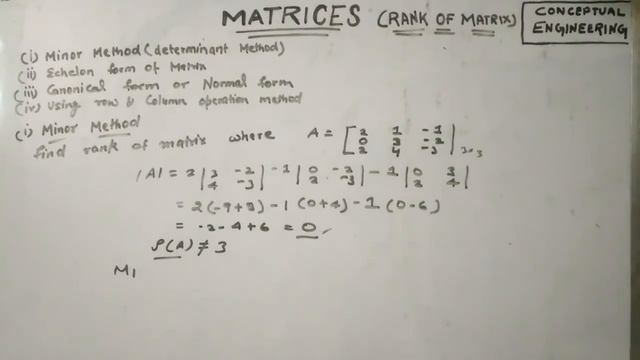 MATRICES (RANK OF MATRIX)
CONCEPTUAL
ENGINEERING
(i) Minor Method (determinant Method)
(ii) Echelon form of Matrix
(iii) Canonical form or Normal form
(iv) Using row & Column operation method
(i) Minor Method
find rank of matrix where A = [2 1 -1
0 3 -2
2 4 -3] 3×3
|A| = 2 |3 -2 / 4 -3| -1 |0 -2 / 2 -3| -1 |0 3 / 2 4|
= 2(-9+8) -1 (0+4) -1 (0-6)
= -2-4+6 = 0
ρ(A) ≠ 3
M1